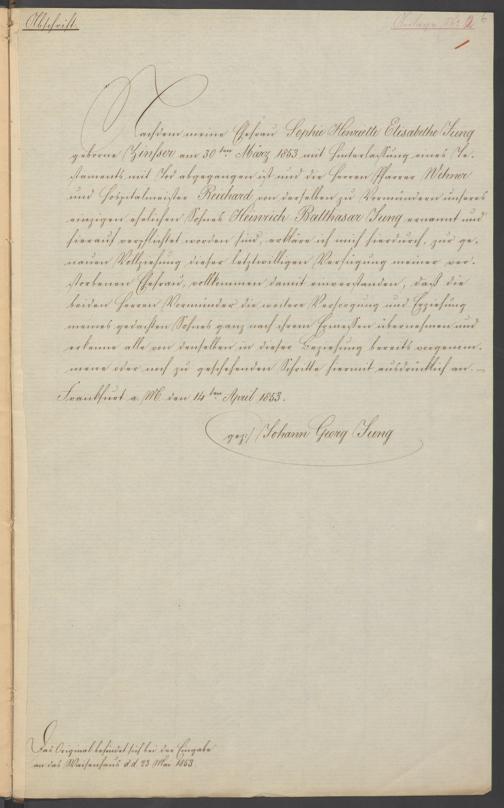 Abschrift.
Beilage No 2 6
Nachdem meine Ehefrau Sophie Henriette Elisabethe Jung
geborne Zinsser am 30ten März 1853 mit Hinterlassung eines Te-
staments mit Tod abgegangen ist und die Herren Pfarrer Wehner
und Hospitalmeister Reichard von derselben zu Vormündern unseres
einzigen ehelichen Sohnes Heinrich Balthasar Jung ernannt und
hierauf verpflichtet worden sind, erkläre ich mich hierdurch, zur ge-
nauen Vollziehung dieser letztwilligen Verfügung meiner ver-
storbenen Ehefrau, vollkommen damit einverstanden, daß die
beiden Herren Vormünder die weitere Versorgung und Erziehung
meines gedachten Sohnes ganz nach ihrem Ermessen übernehmen und
erkenne alle von denselben in dieser Beziehung bereits vorgenom-
mene oder noch zu geschehenden Schritte hiermit ausdrücklich an. —
Frankfurt a. M. den 14ten April 1853.
gez:/ Johann Georg Jung
Das Original befindet sich bei der Eingabe
an das Waisenhaus d.d. 23 Mai 1853